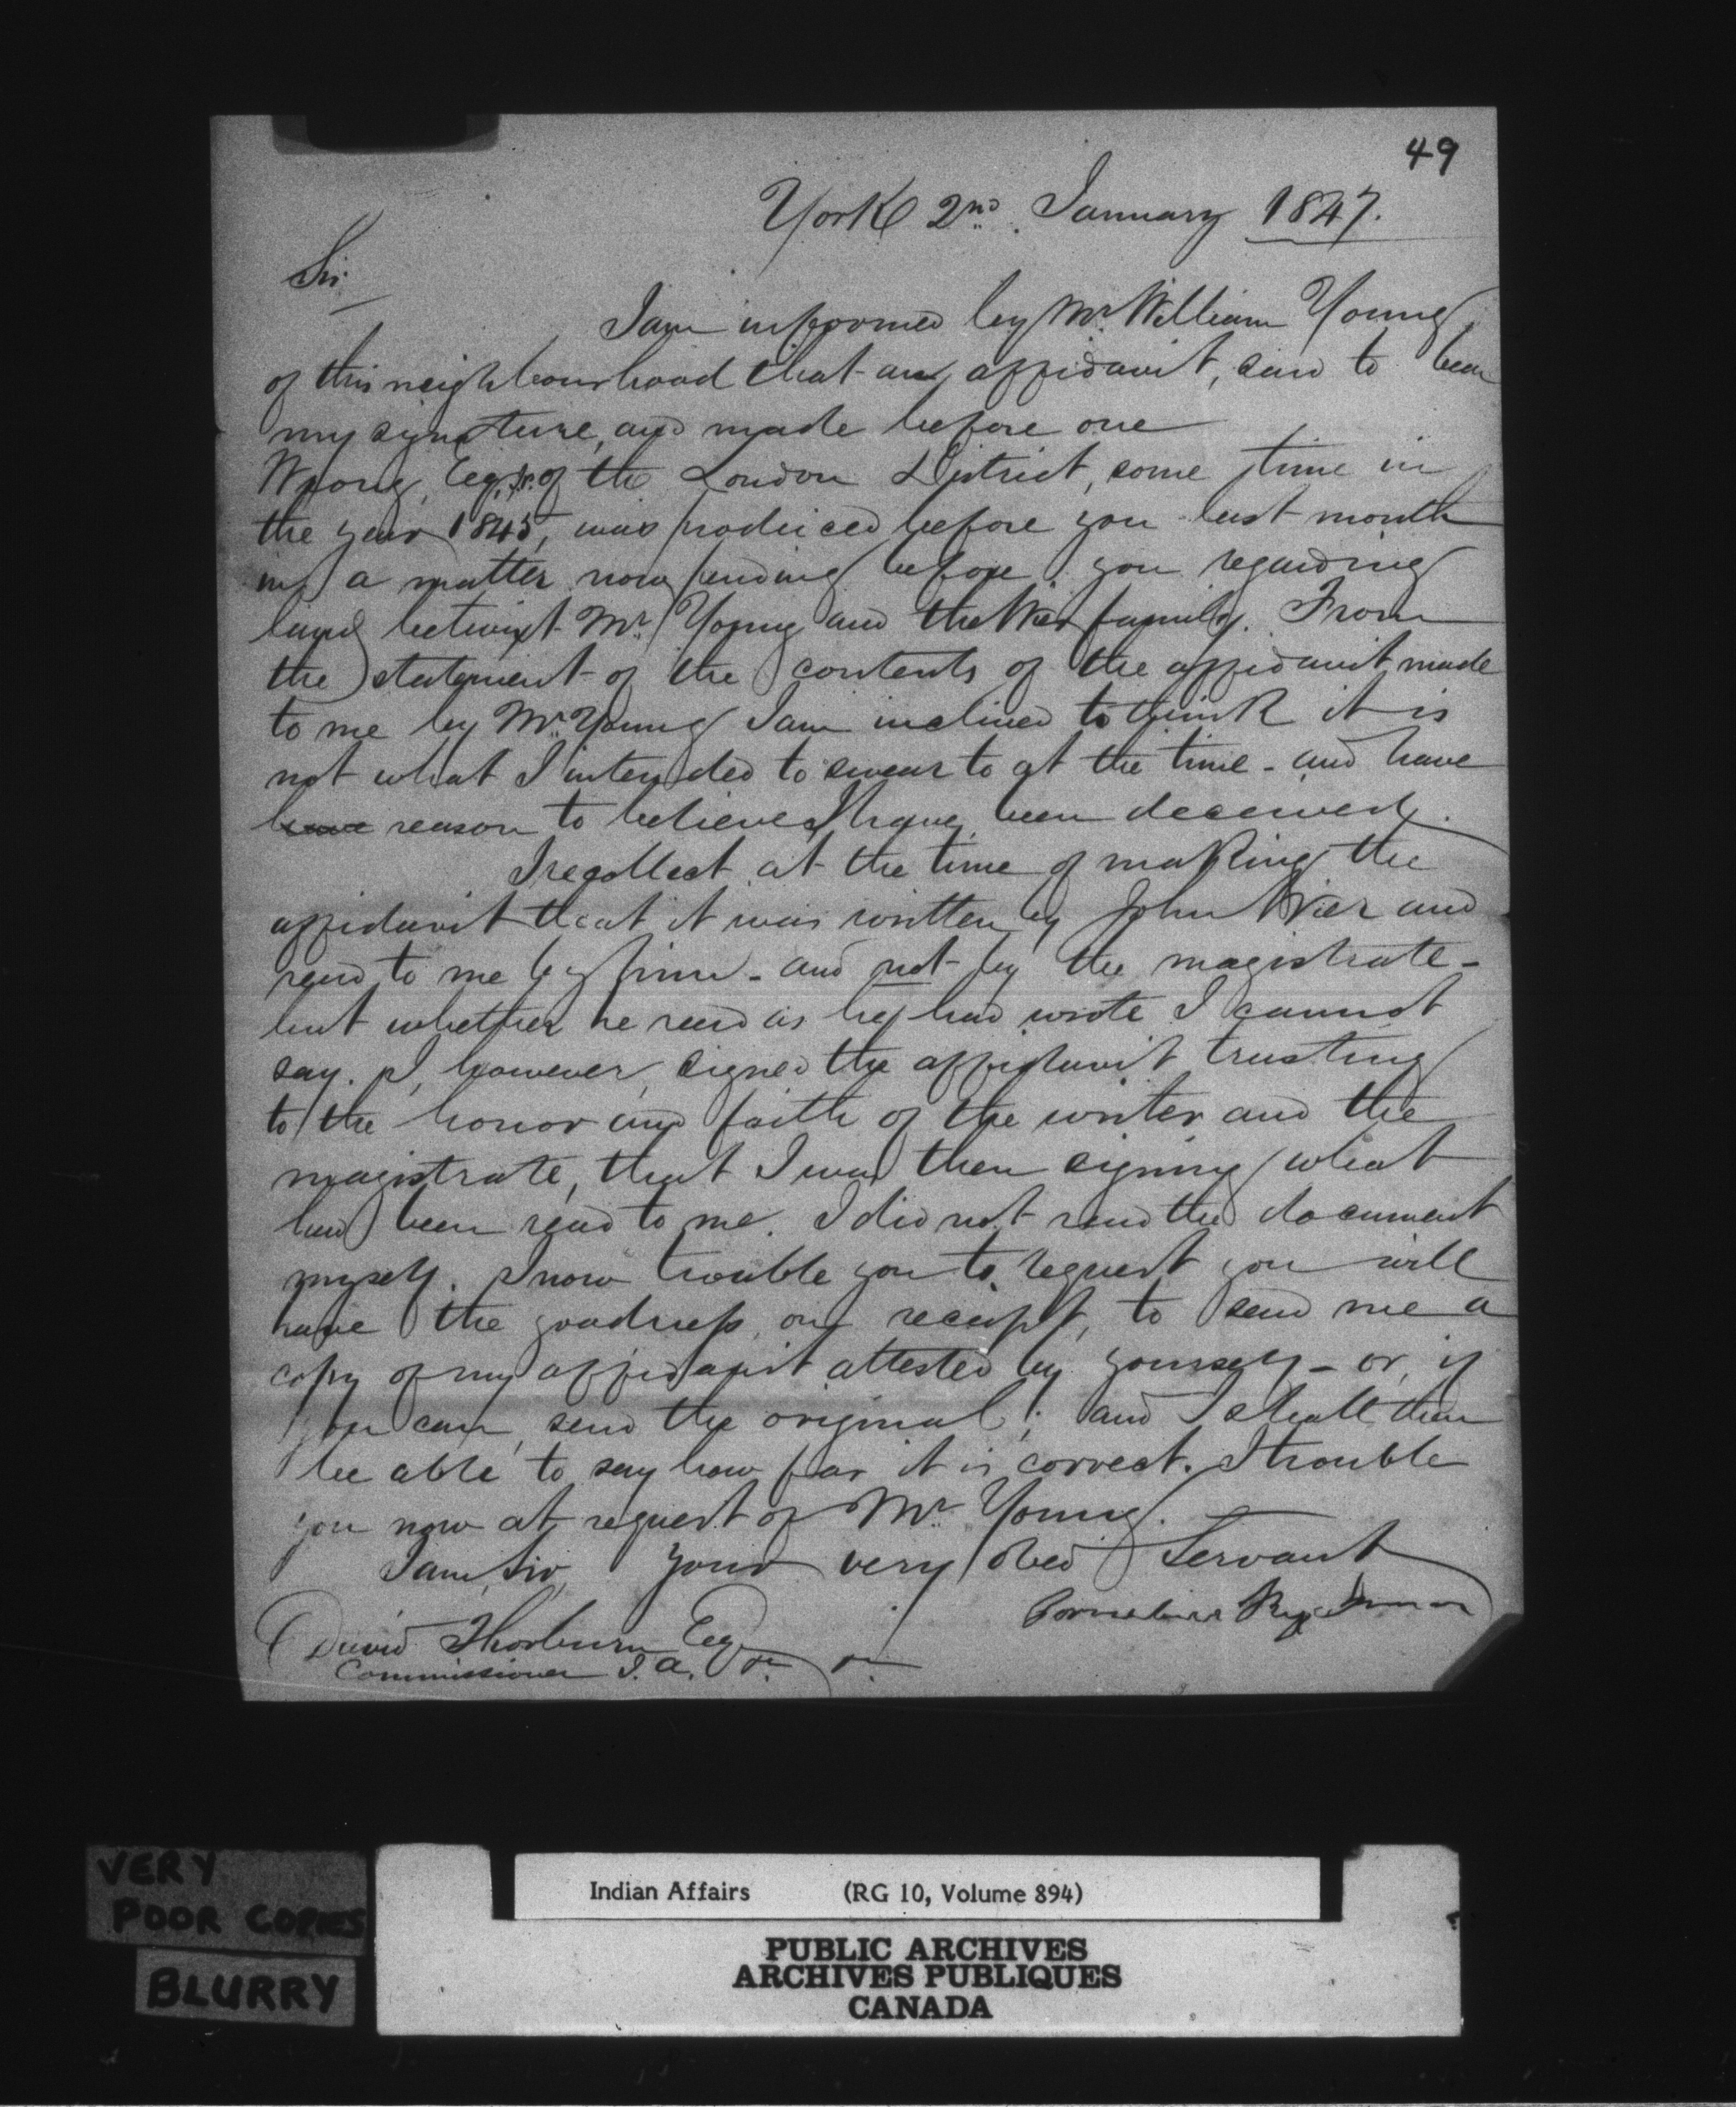 49
York 2nd January 1847.
Sir
I am informed by Mr. William Young
of this neighbourhood that an affidavit, said to bear
my signature, and made before one
Wrong, Esq. of the London District, some time in
the year 1845, was produced before you last month
in a matter now pending before you regarding
land betwixt Mr. Young and the Wier family. From
the statement of the contents of the affidavit made
to me by Mr. Young I am inclined to think it is
not what I intended to swear to at the time - and have
have reason to believe I have been deceived.
I recollect at the time of making the
affidavit that it was written by John Wier and
read to me by him - and not by the magistrate -
but whether he read as he had wrote I cannot
say. I, however, signed the affidavit trusting
to the honor and faith of the writer and the
magistrate, that I was then signing what
had been read to me. I did not read the document
myself. I now trouble you to request you will
have the goodness, on receipt, to send me a
copy of my affidavit attested by yourself - or, if
you can, send the original; and I shall then
be able to say how far it is correct. I trouble
you now at request of Mr. Young.
I am, Sir, your very obed Servant
Cornelius
David Thorburn Esq
Commissioner I.A.
VERY
POOR COPIES
BLURRY
Indian Affairs (RG 10, Volume 894)
PUBLIC ARCHIVES
ARCHIVES PUBLIQUES
CANADA